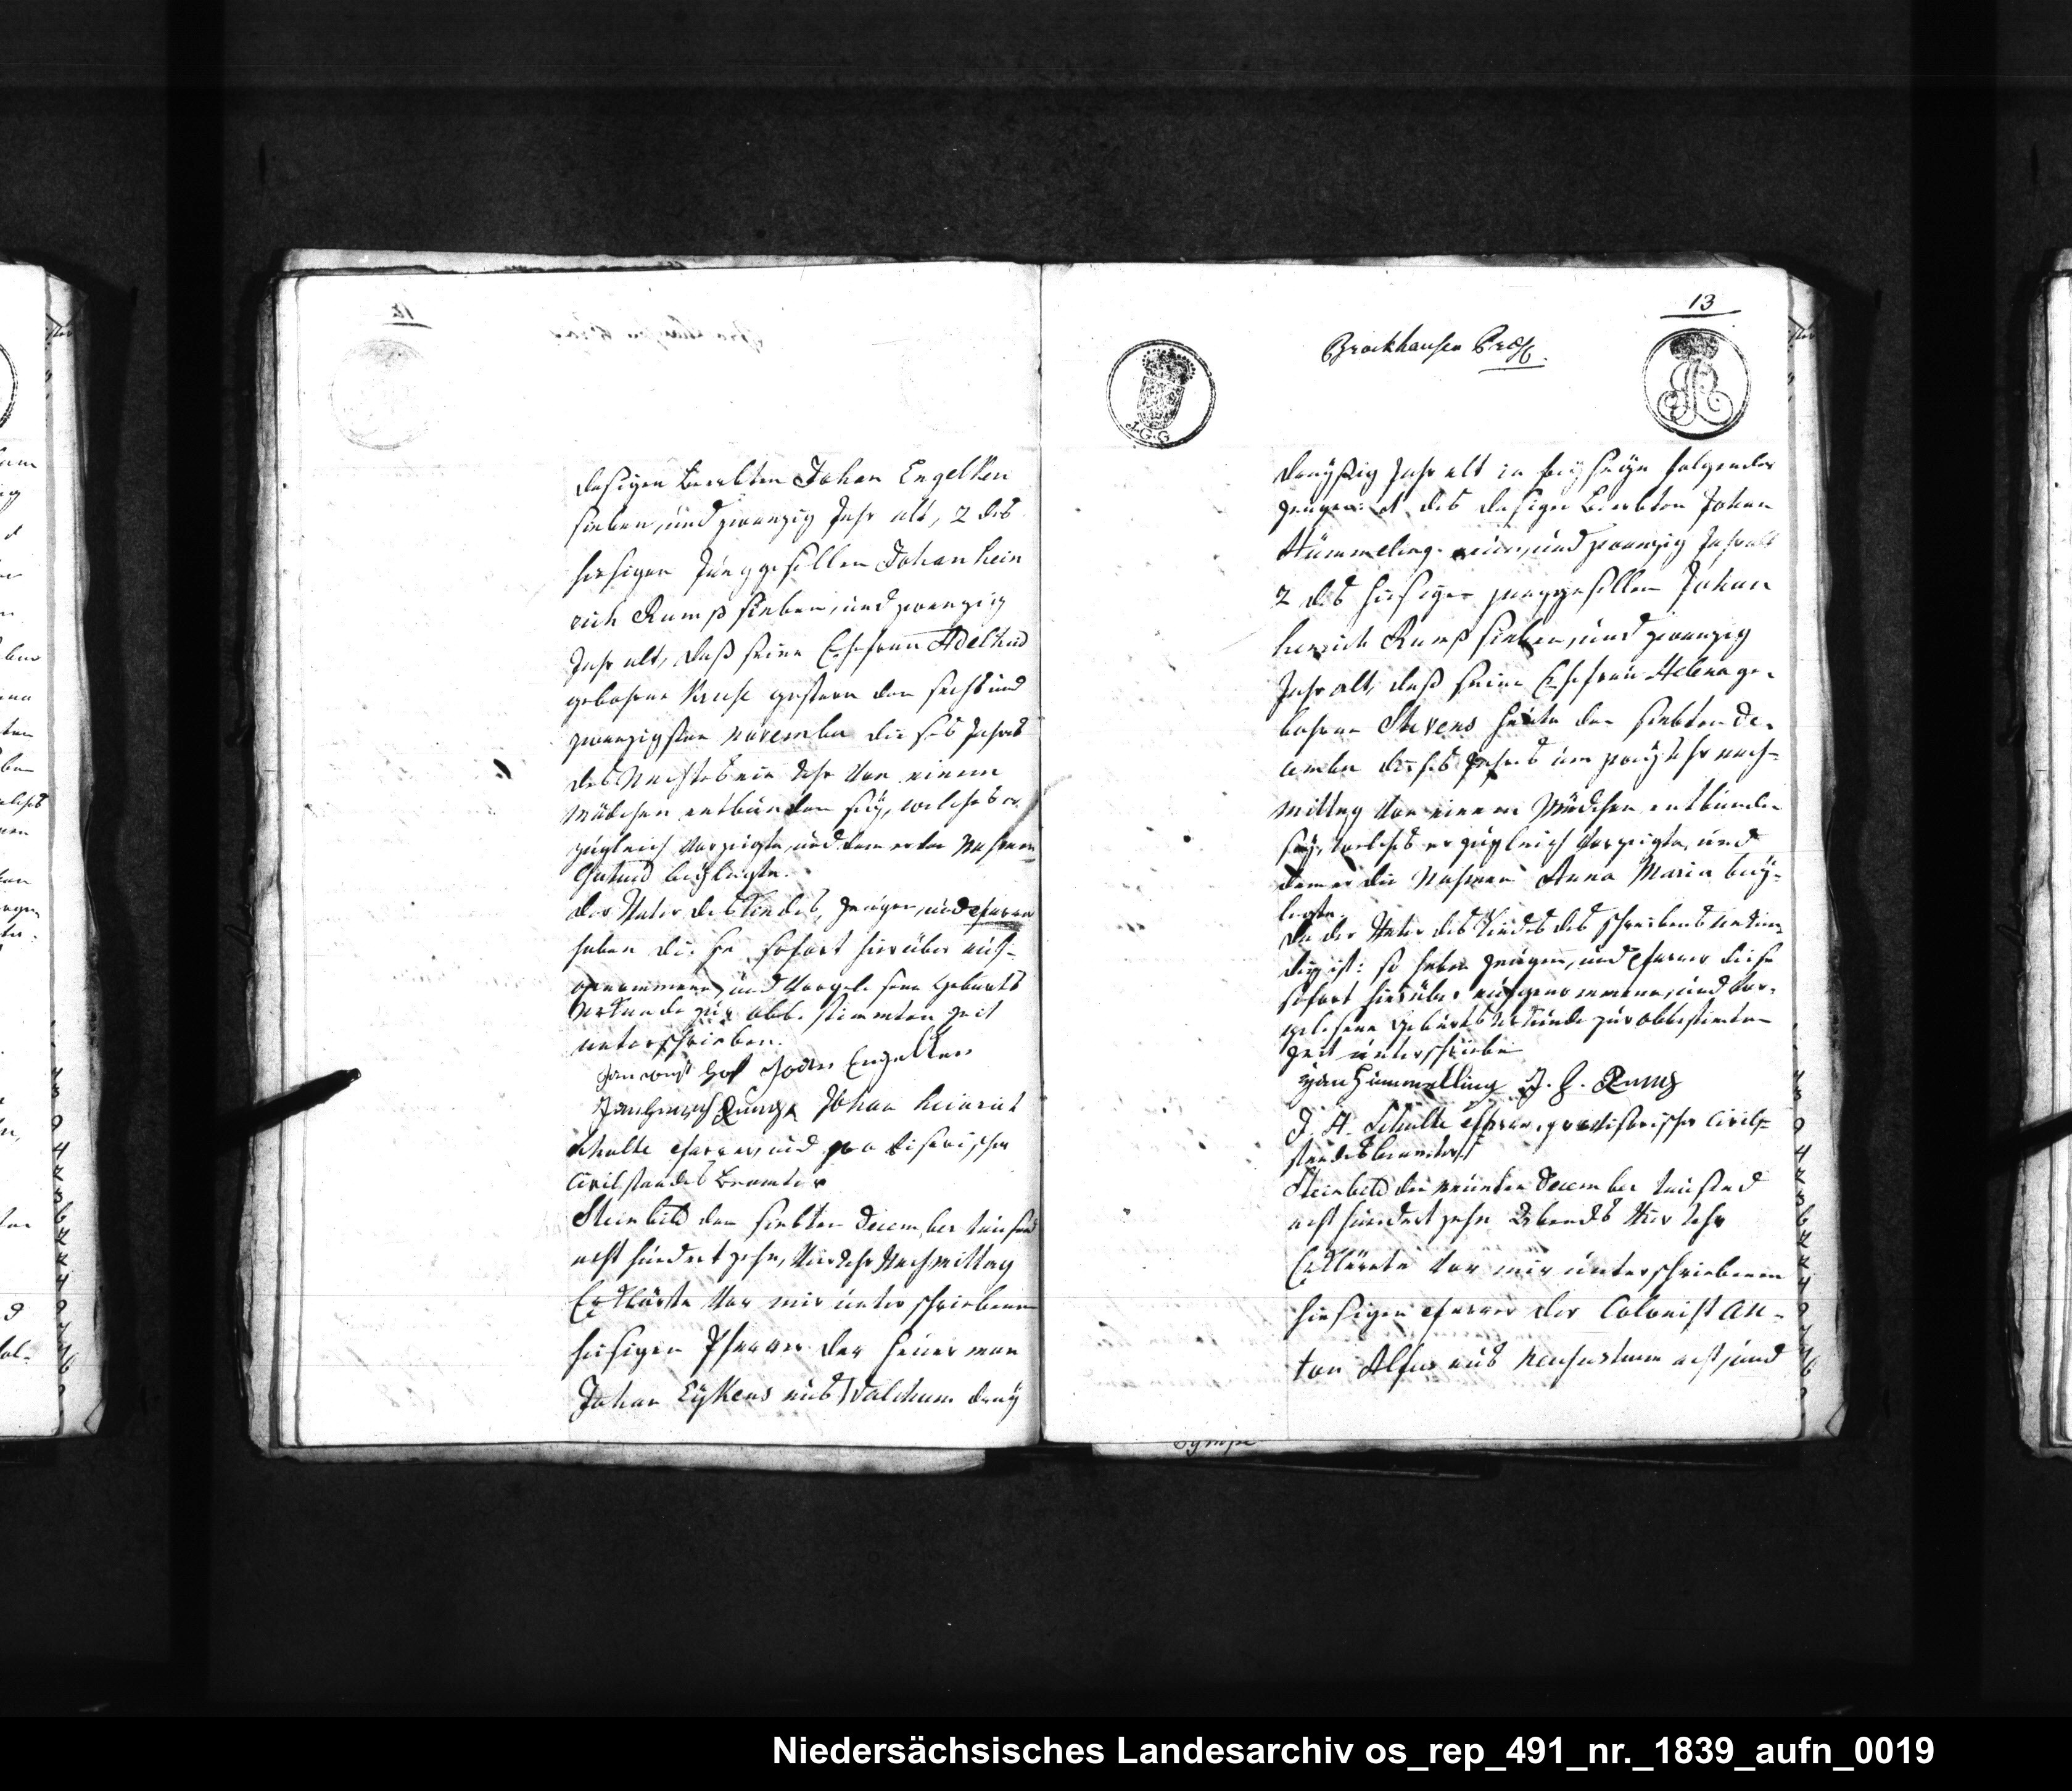 12
dasigen Beerbten Johan Engelken
sieben und zwanzig Jahr alt, 2 des
hiesigen Junggesellen Johan Hein
rich Rumß sieben und zwanzig
Jahr alt, daß seine Ehefrau Adelheid
gebohrne gestern den sechs und
zwanzigsten November dieses Jahres
des Nachts ein Uhr von einem
Mädchen entbunden sey, welches er
zugleich vorzeigte, und dem er den Nahmen
beylegte.
der Vater des Kindes, Zeugen, und Pfarrer
haben diese sofort hierüber auf-
genommene, und vorgelesene Geburts
Urkunde zur obbestimmten Zeit
unterschrieben.
Engelken
Johan Heinrich
Schulte Pfarrer, und provisorischer
Civilstandes Beamter
Steinbild den siebten December tausend
acht hundert zehn, vier Uhr Nachmittag
Erklärte vor mir unterschriebenen
hiesigen Pfarrer der Heuerman
Johan Eykens aus Walchum drey
13
Brockhausen Präs.
J.G.G
dreyßig Jahr alt in beyseyn folgender
Zeugen: 1 des dasigen Beerbten Johan
Hümmeling neun und zwanzig Jahr alt
2 des hiesigen Junggesellen Johan
Henrich Rumß sieben und zwanzig
Jahr alt, daß seine Ehefrau Helena ge-
bohrne Stevens heute den siebten De-
cember dieses Jahres um zwey Uhr nach-
mittag von einem Mädchen entbunden
sey, welches er zugleich vorzeigte, und
dem er die Nahmen Anna Maria bey-
legte.
Da der Vater des Kindes des schreibens unkün-
dig ist: so haben Zeugen, und Pfarrer diese
sofort hierüber aufgenommene, und vor-
gelesene Geburts Urkunde zur obbestimten
Zeit unterschrieben
Jan Hümmelling J. H. Rumß
J. H. Schulte Pfarrer, provisorischer Civil-
standesbeamter
Steinbild den neunten December tausend
acht hundert zehn Abends vier Uhr
Erklärete vor mir unterschriebenen
hiesigen Pfarrer der Colonist An-
ton Alfers aus Neusustrum acht, und
Niedersächsisches Landesarchiv os_rep_491_nr._1839_aufn_0019